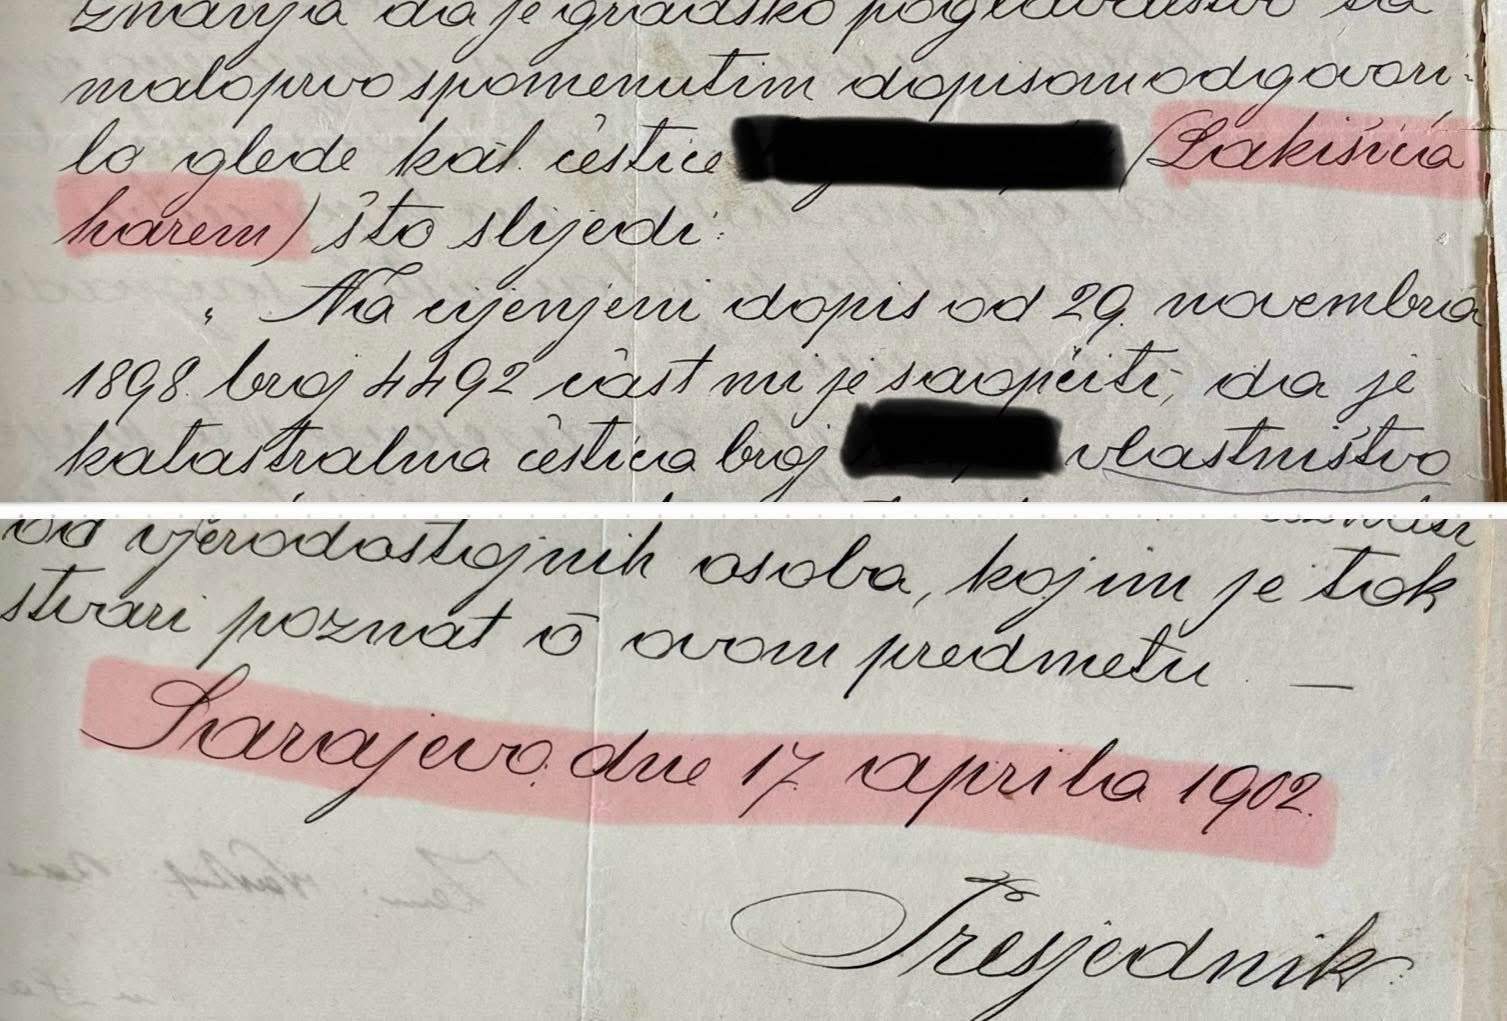 znanja da je gradsko poglavarstvo sa
maloprvo spomenutim dopisom odgovori-
lo glede kat. čestice (Lakišića
harem) što slijedi:
„ Na cijenjeni dopis od 29. novembra
1898. broj 4492 čast mi je saopćiti, da je
katastralna čestica broj vlastništvo
od vjerodostojnih osoba, kojim je tok
stvari poznat o ovom predmetu. —
Sarajevo, dne 17. aprila 1902.
Presjednik: